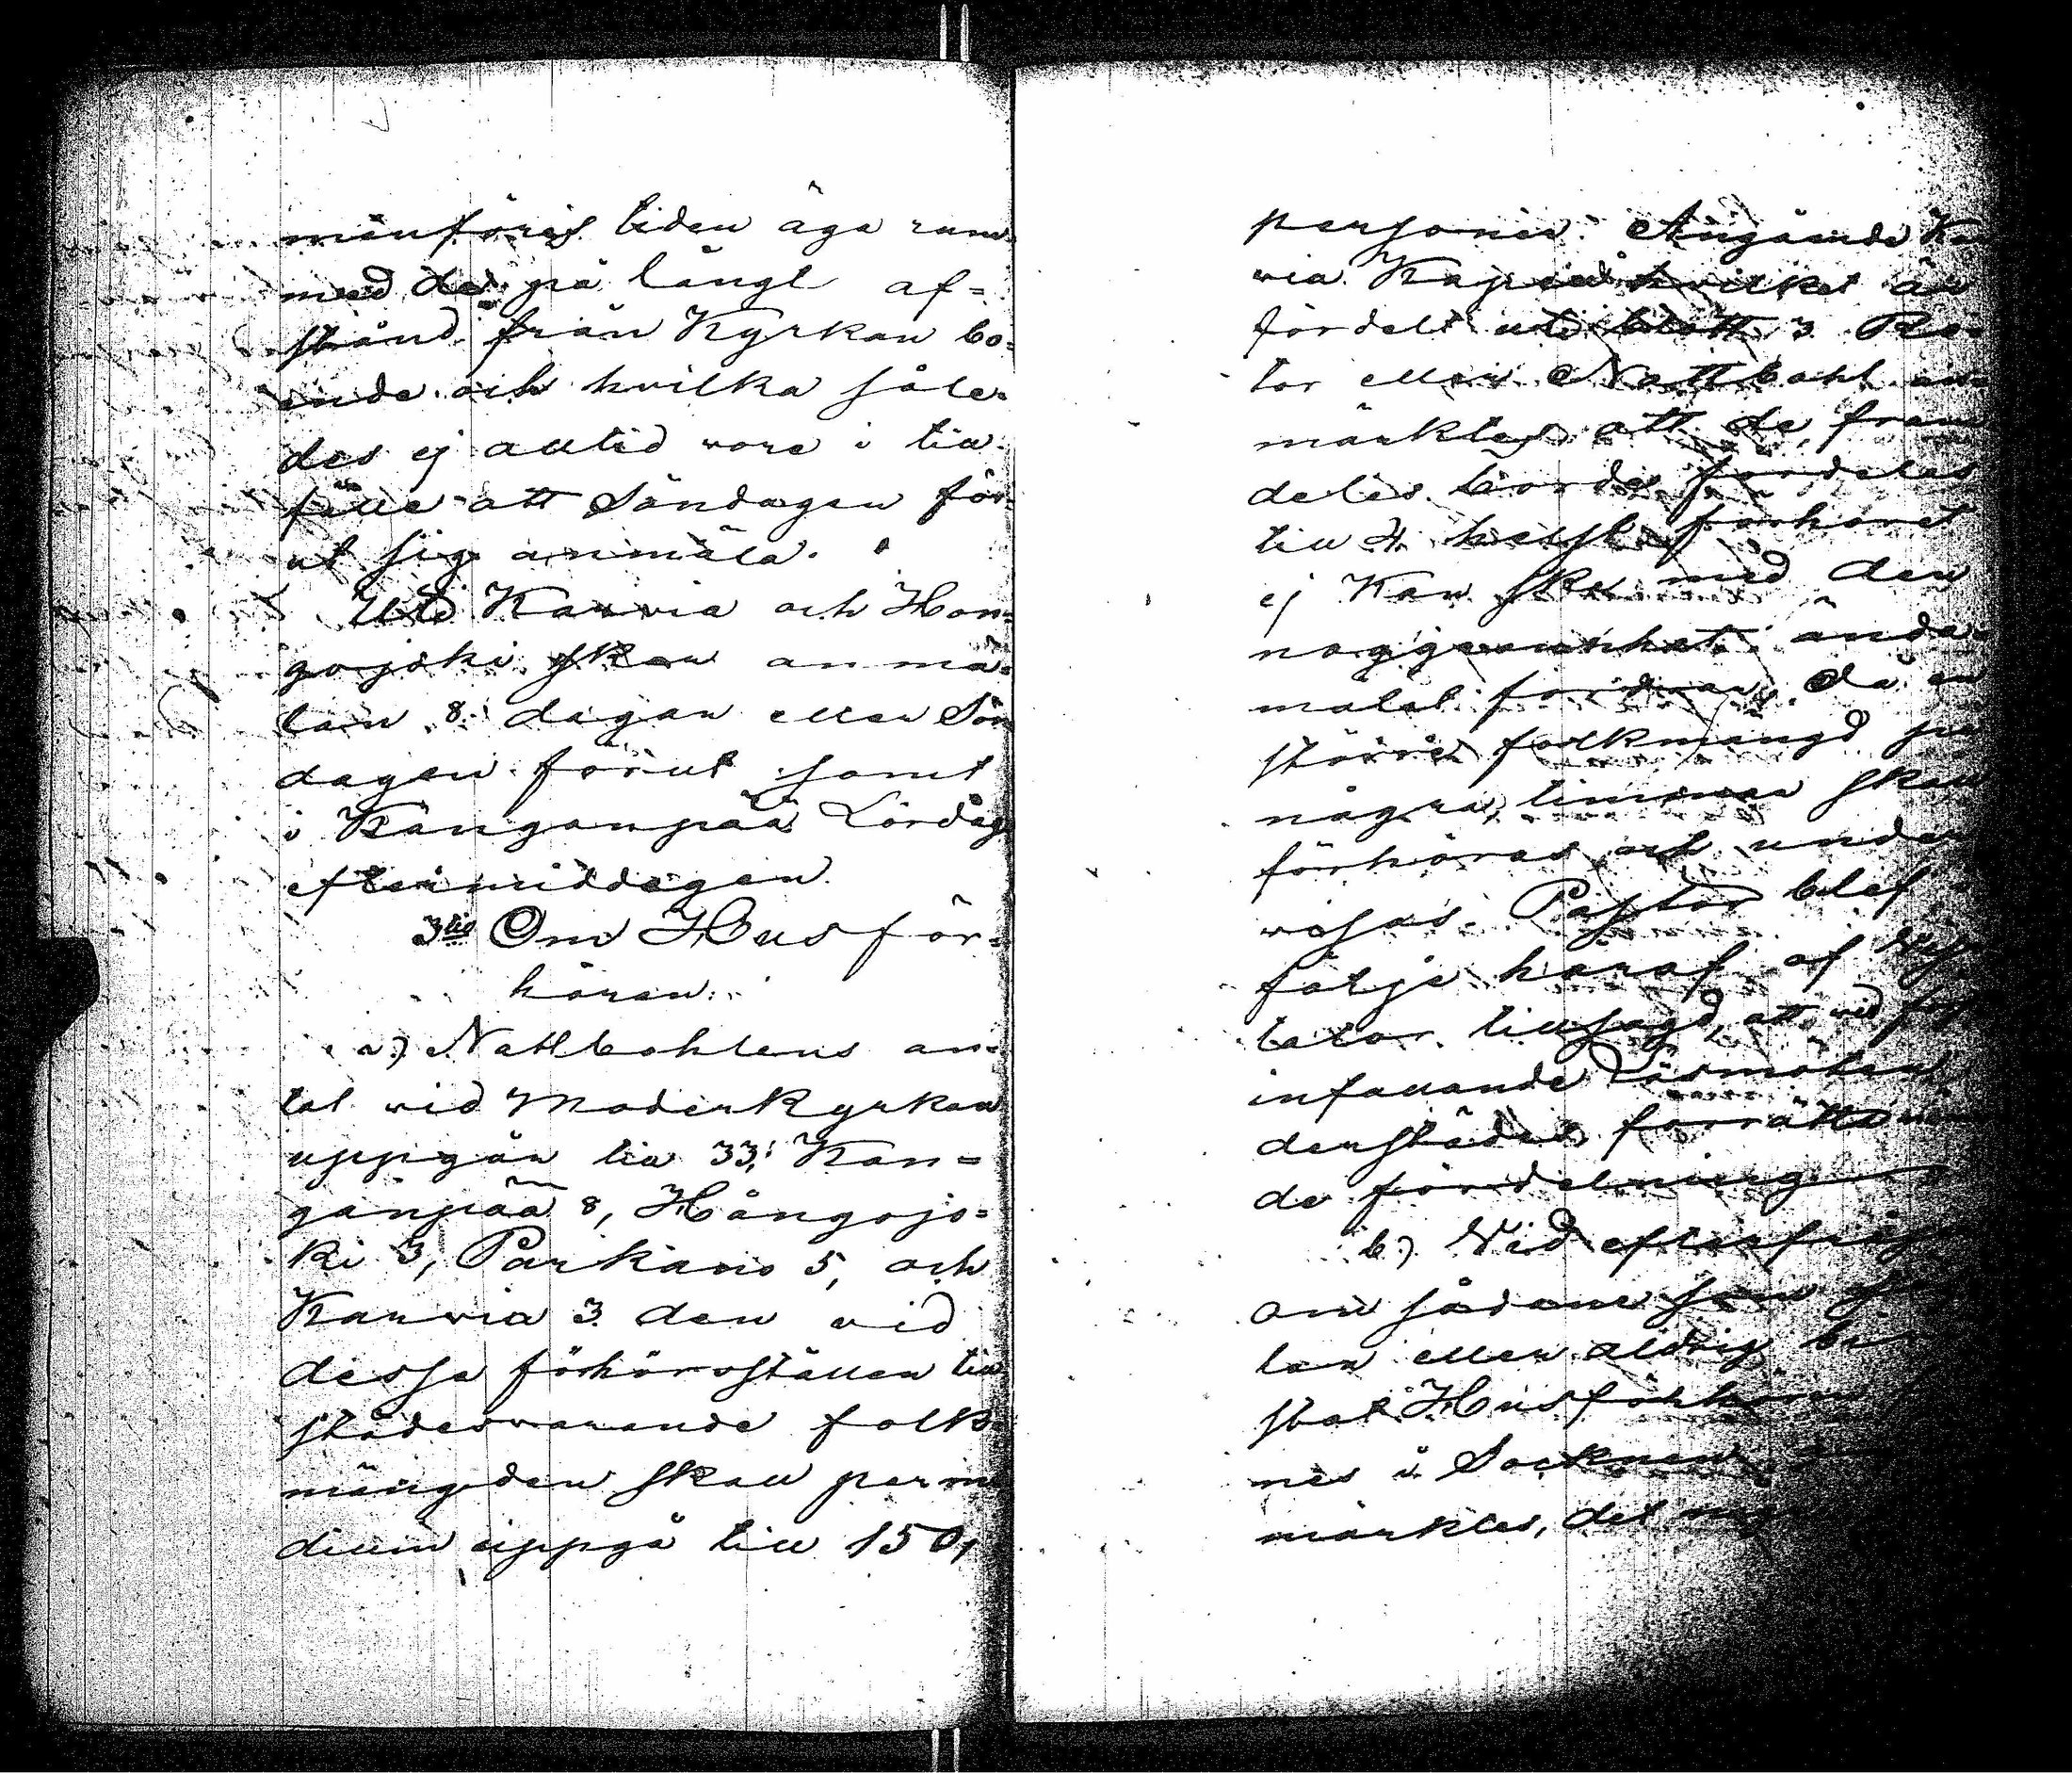 menföres tiden äga rum
med de på långt af=
stånd från Kyrkan bo=
ende och hvilka såle=
des ej alltid vore i till=
fälle att Söndagen för=
ut sig anmäla.
Uti Karvia och Hon=
gojoki skall anmä=
lan 8 dagar eller Sön
dagen förut samt
i Kanganpää Lördags
eftermiddagen.
3tio Om Husför=
hören.
a.) Nattbohlens an=
tal vid Moderkyrkan
uppgår till 33, Kan=
ganpää 8, Hångojo=
ki 3, Parkano 5, och
Karvia 3. den vid
dessa förhörsställen till
städesvarande folk=
mängden skall per me
dium uppgå till 150,
personer. Angående Kar
via Kapell hvilket är
fördelt uti blott 3 Ro=
tar eller Nattbohl an=
märktes att de fram
deles borde fördelas
till 4. helst förhöret
ej kan ske med den
noggrannhet ända=
målet fordrar, då en
större folkmängd på
några timmar skall
förhöras och under
visas. Pastor blef
följe häraf af Visi
tator tillsagd, att vid för
infallande Läsmöten
derstädes förrätta
de fördelning
b.) Vid efterfrågan
om sådane som
lan eller aldrig bi
stat Husförhören
nes i Socknen
märktes, det